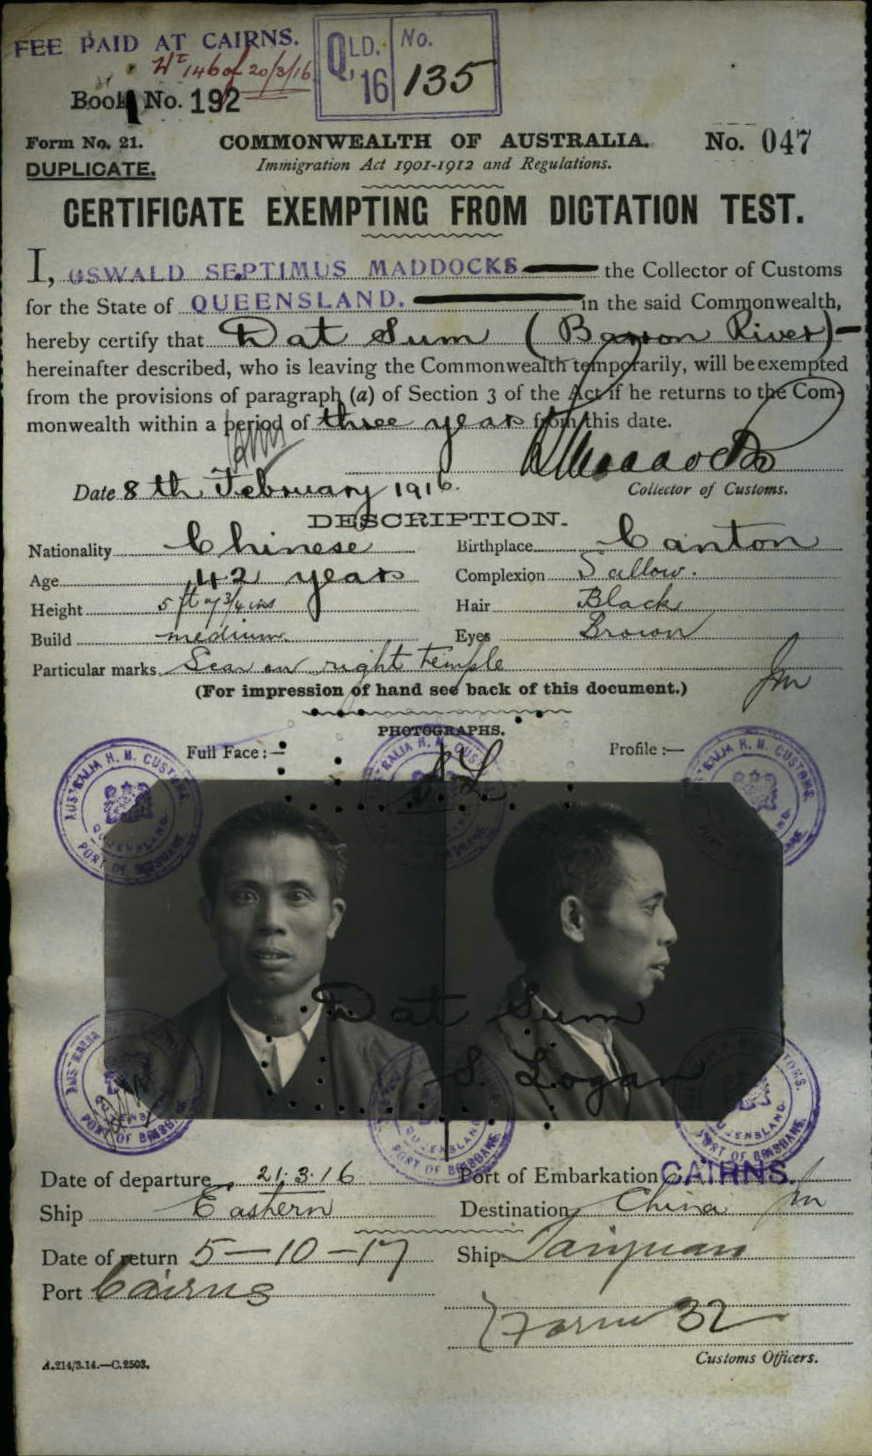 FEE PAID AT CAIRNS.
QLD. No.
'16 135
146 of 20/3/16
Book No. 192
Form No. 21. COMMONWEALTH OF AUSTRALIA. No. 047
DUPLICATE. Immigration Act 1901-1912 and Regulations.
CERTIFICATE EXEMPTING FROM DICTATION TEST.
I, OSWALD SEPTIMUS MADDOCKS the Collector of Customs
for the State of QUEENSLAND. in the said Commonwealth,
hereby certify that Dat Sum (Barron River)
hereinafter described, who is leaving the Commonwealth temporarily, will be exempted
from the provisions of paragraph (a) of Section 3 of the Act if he returns to the Com-
monwealth within a period of three years from this date.
Maddocks
Date 8th February 1916. Collector of Customs.
DESCRIPTION.
Nationality Chinese Birthplace Canton
Age 42 years Complexion Sallow.
Height 5 ft 7 3/4 ins Hair Black
Build medium. Eyes Brown
Particular marks Scar on right temple
(For impression of hand see back of this document.) Jm
PHOTOGRAPHS.
Full Face :— Profile :—
SL
AUSTRALIA H. M. CUSTOMS. QUEENSLAND. PORT OF BRISBANE
Dat Sum
S. Logan
Date of departure 21.3.16 Port of Embarkation CAIRNS.
Ship Eastern Destination China Jm
Date of return 5-10-17 Ship Taiyuan
Port Cairns
Form 32
A.214/3.14.—C.2503. Customs Officers.